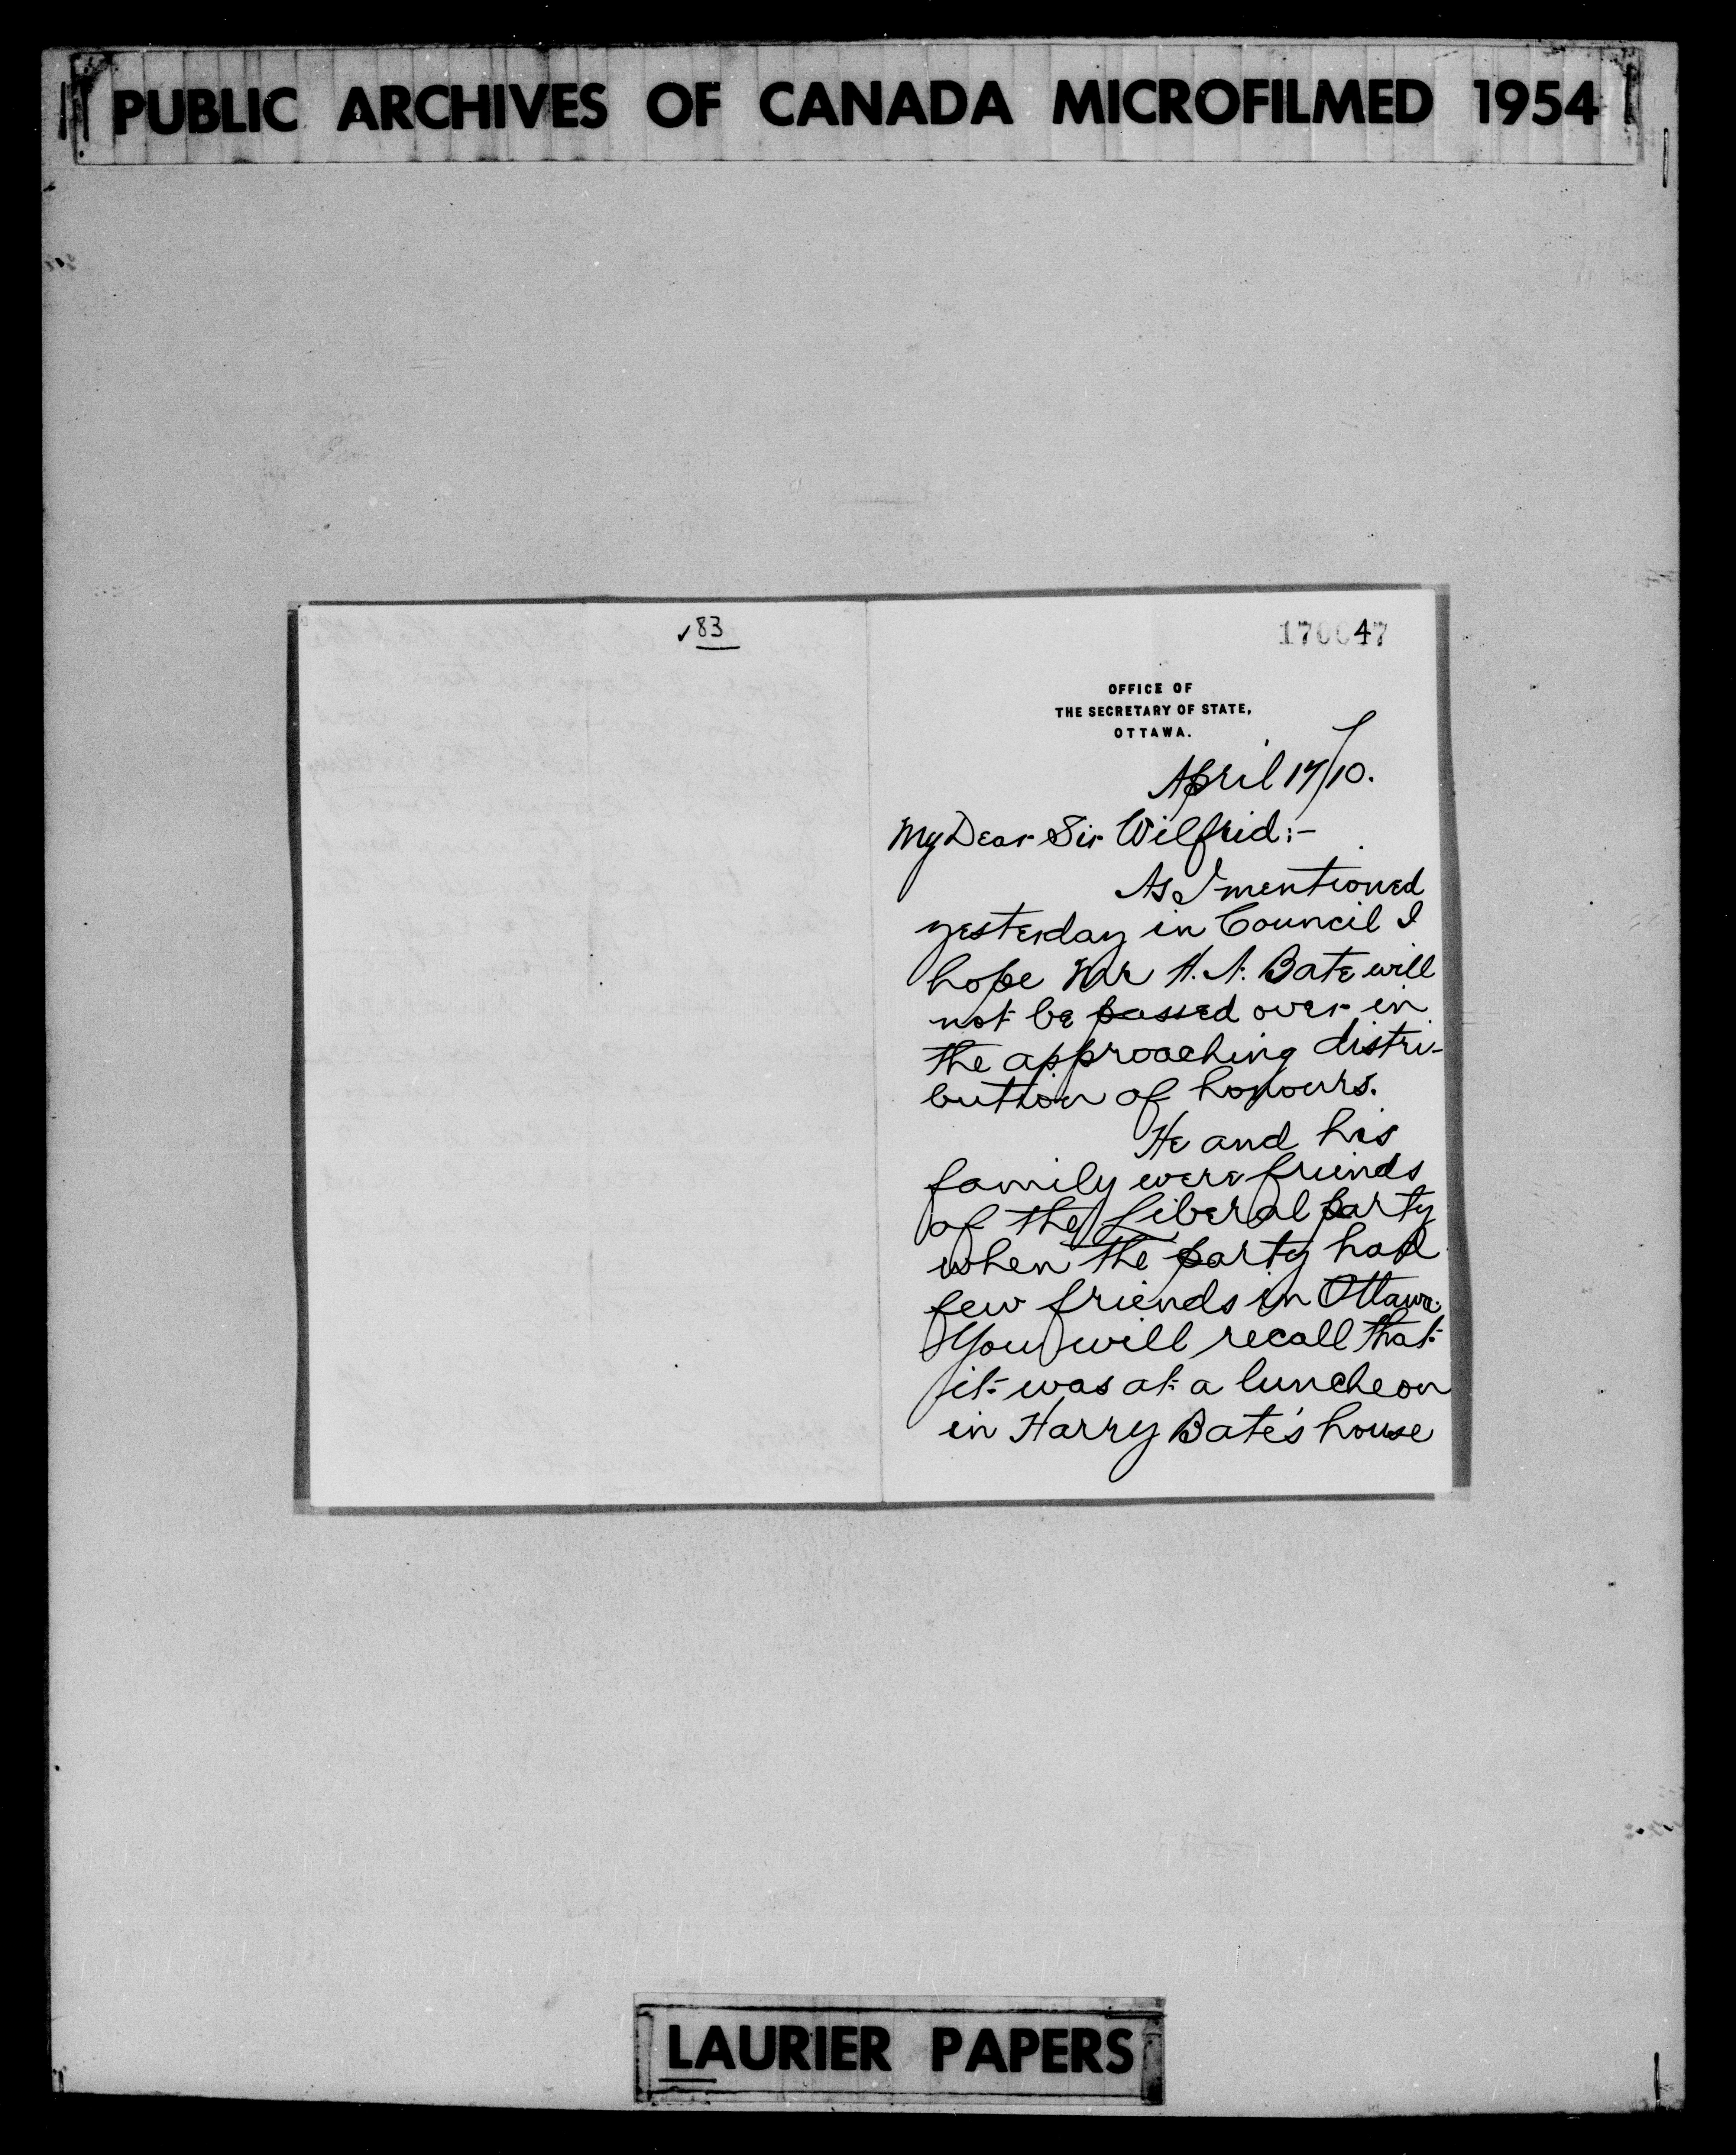 PUBLIC ARCHIVES OF CANADA MICROFILMED 1954
✓83
170047
OFFICE OF
THE SECRETARY OF STATE,
OTTAWA.
April 17/10.
My Dear Sir Wilfrid:-
As I mentioned
yesterday in Council I
hope Mr H. N. Bate will
not be passed over in
the approaching distri-
bution of honours.
He and his
family were friends
of the Liberal party
when the party had
few friends in Ottawa.
You will recall that
it was at a luncheon
in Harry Bate's house
LAURIER PAPERS